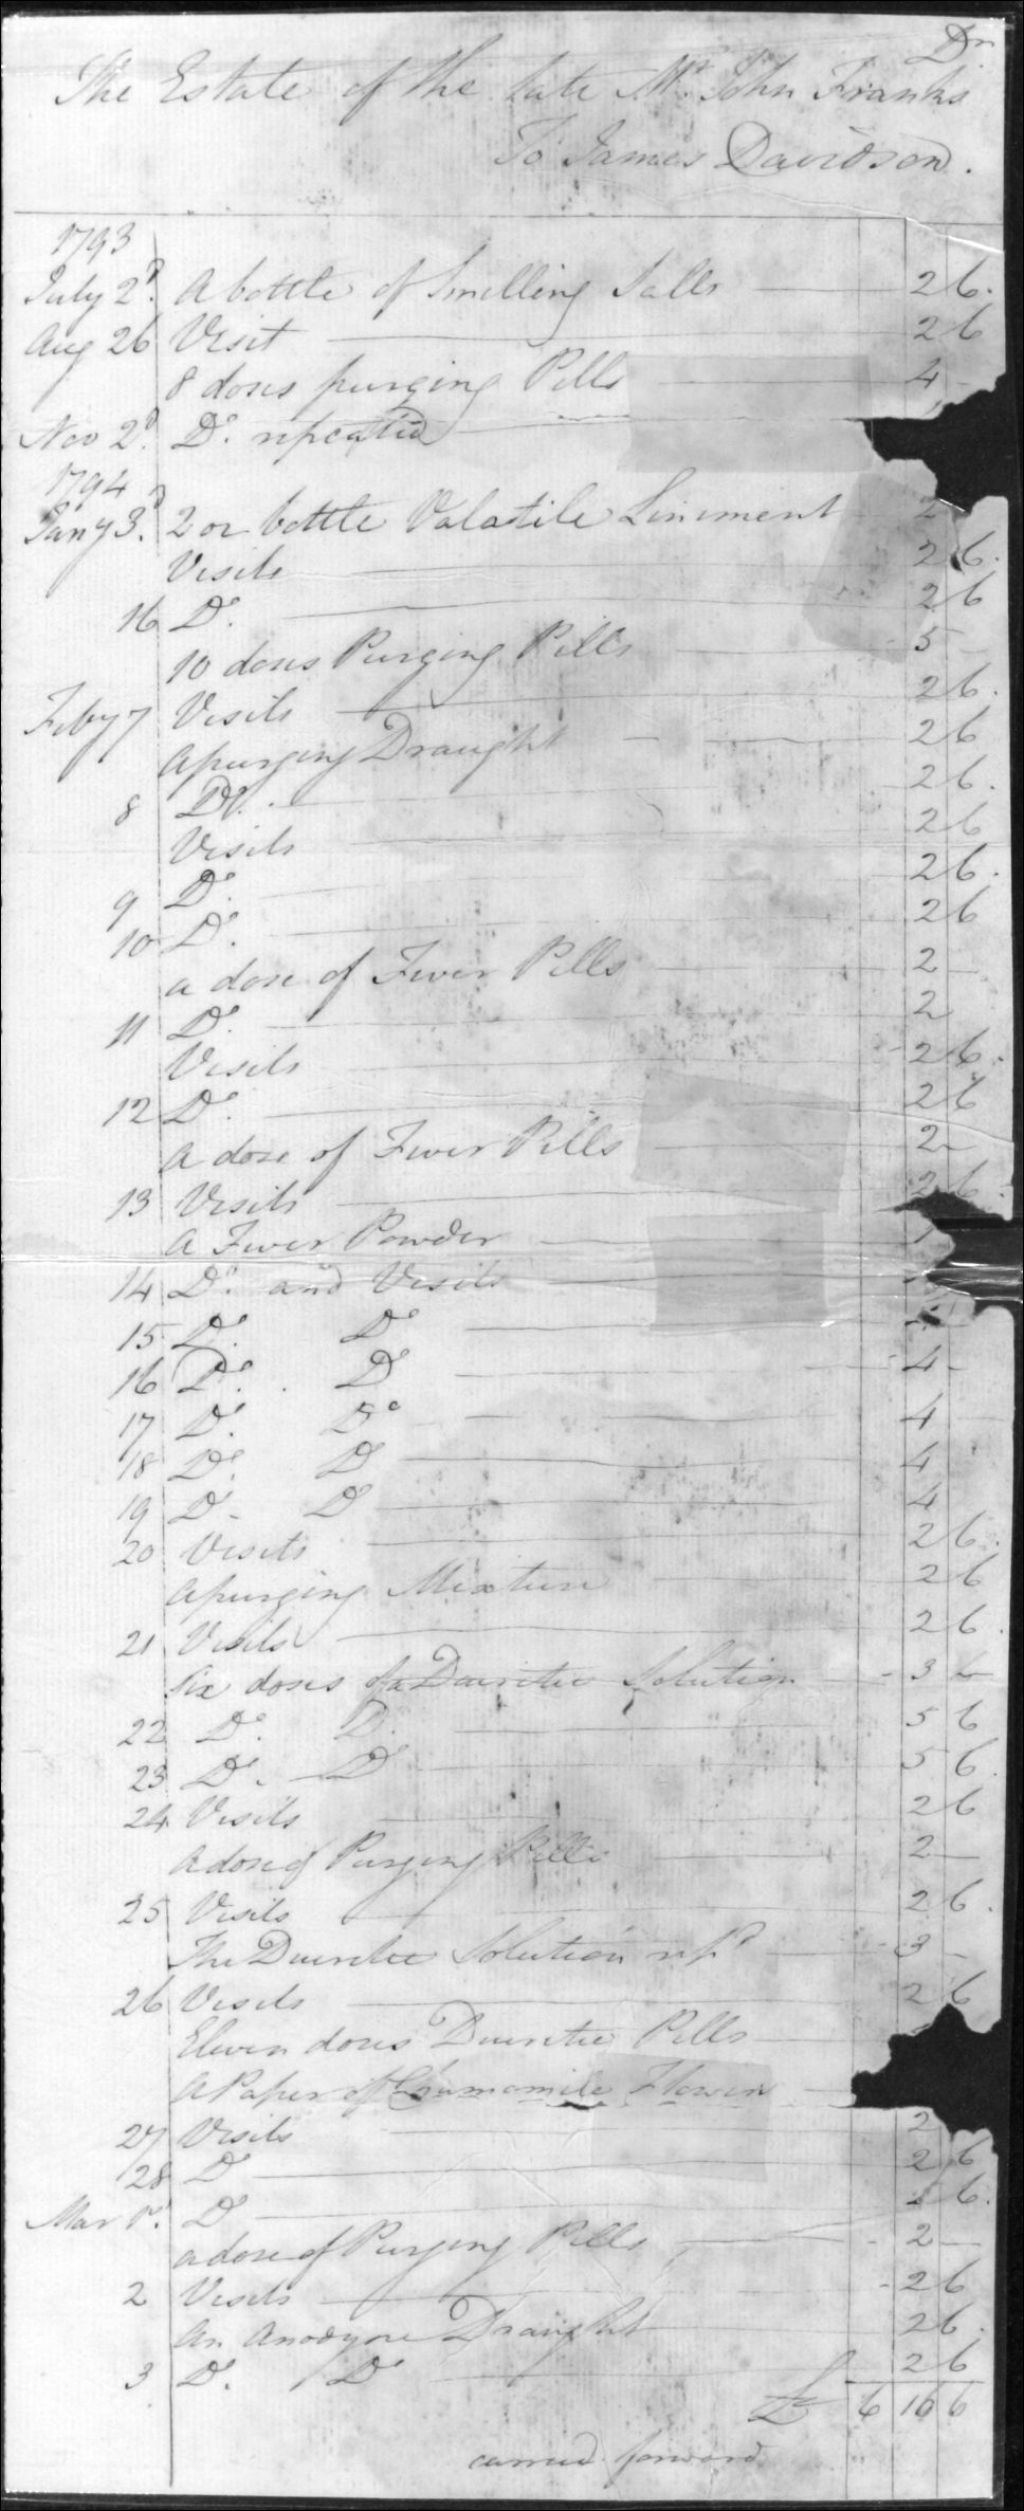 Dr
The Estate of the late Mr. John Franks
To James Davidson.
1793
July 2d. A bottle of Smelling Salts 2 6.
Aug 26 Visit 2 6
8 doses purging Pills 4 -
Nov 2d. Do. repeated
1794
Jany 3d. 2 oz bottle Volatile Liniment 2
Visits 2 6.
16 Do. 2 6
10 doses Purging Pills 5 -
Feby 7 Visits 2 6.
A purging Draught 2 6
8 Do. 2 6.
Visits 2 6
9 Do. 2 6.
10 Do. 2 6
a dose of Fever Pills 2 -
11 Do. 2
Visits 2 6.
12 Do. 2 6
A dose of Fever Pills 2 -
13 Visits 2 6.
A Fever Powder
14 Do. and Visits
15 Do. Do
16 Do. Do 4 -
17 Do. Do 4
18 Do. Do 4
19 Do - Do 4
20 Visits 2 6.
A purging Mixture 2 6
21 Visits 2 6.
Six doses of a Diuretic Solution 3 -
22 Do. D. 5 6
23 Do. Do 5 6.
24 Visits 2 6
A dose of Purging Pills 2 -
25 Visits 2 6.
The Diuretic Solution repd 3 -
26 Visits 2 6
Eleven doses Diuretic Pills
A Paper of Chamomile Flowers
27 Visits 2
28 Do 2 6
Mar 1st. Do 2 6.
a dose of Purging Pills 2 -
2 Visits 2 6
An Anodyne Draught 2 6.
3 Do. Do 2 6
£ 6 16 6
carried forward